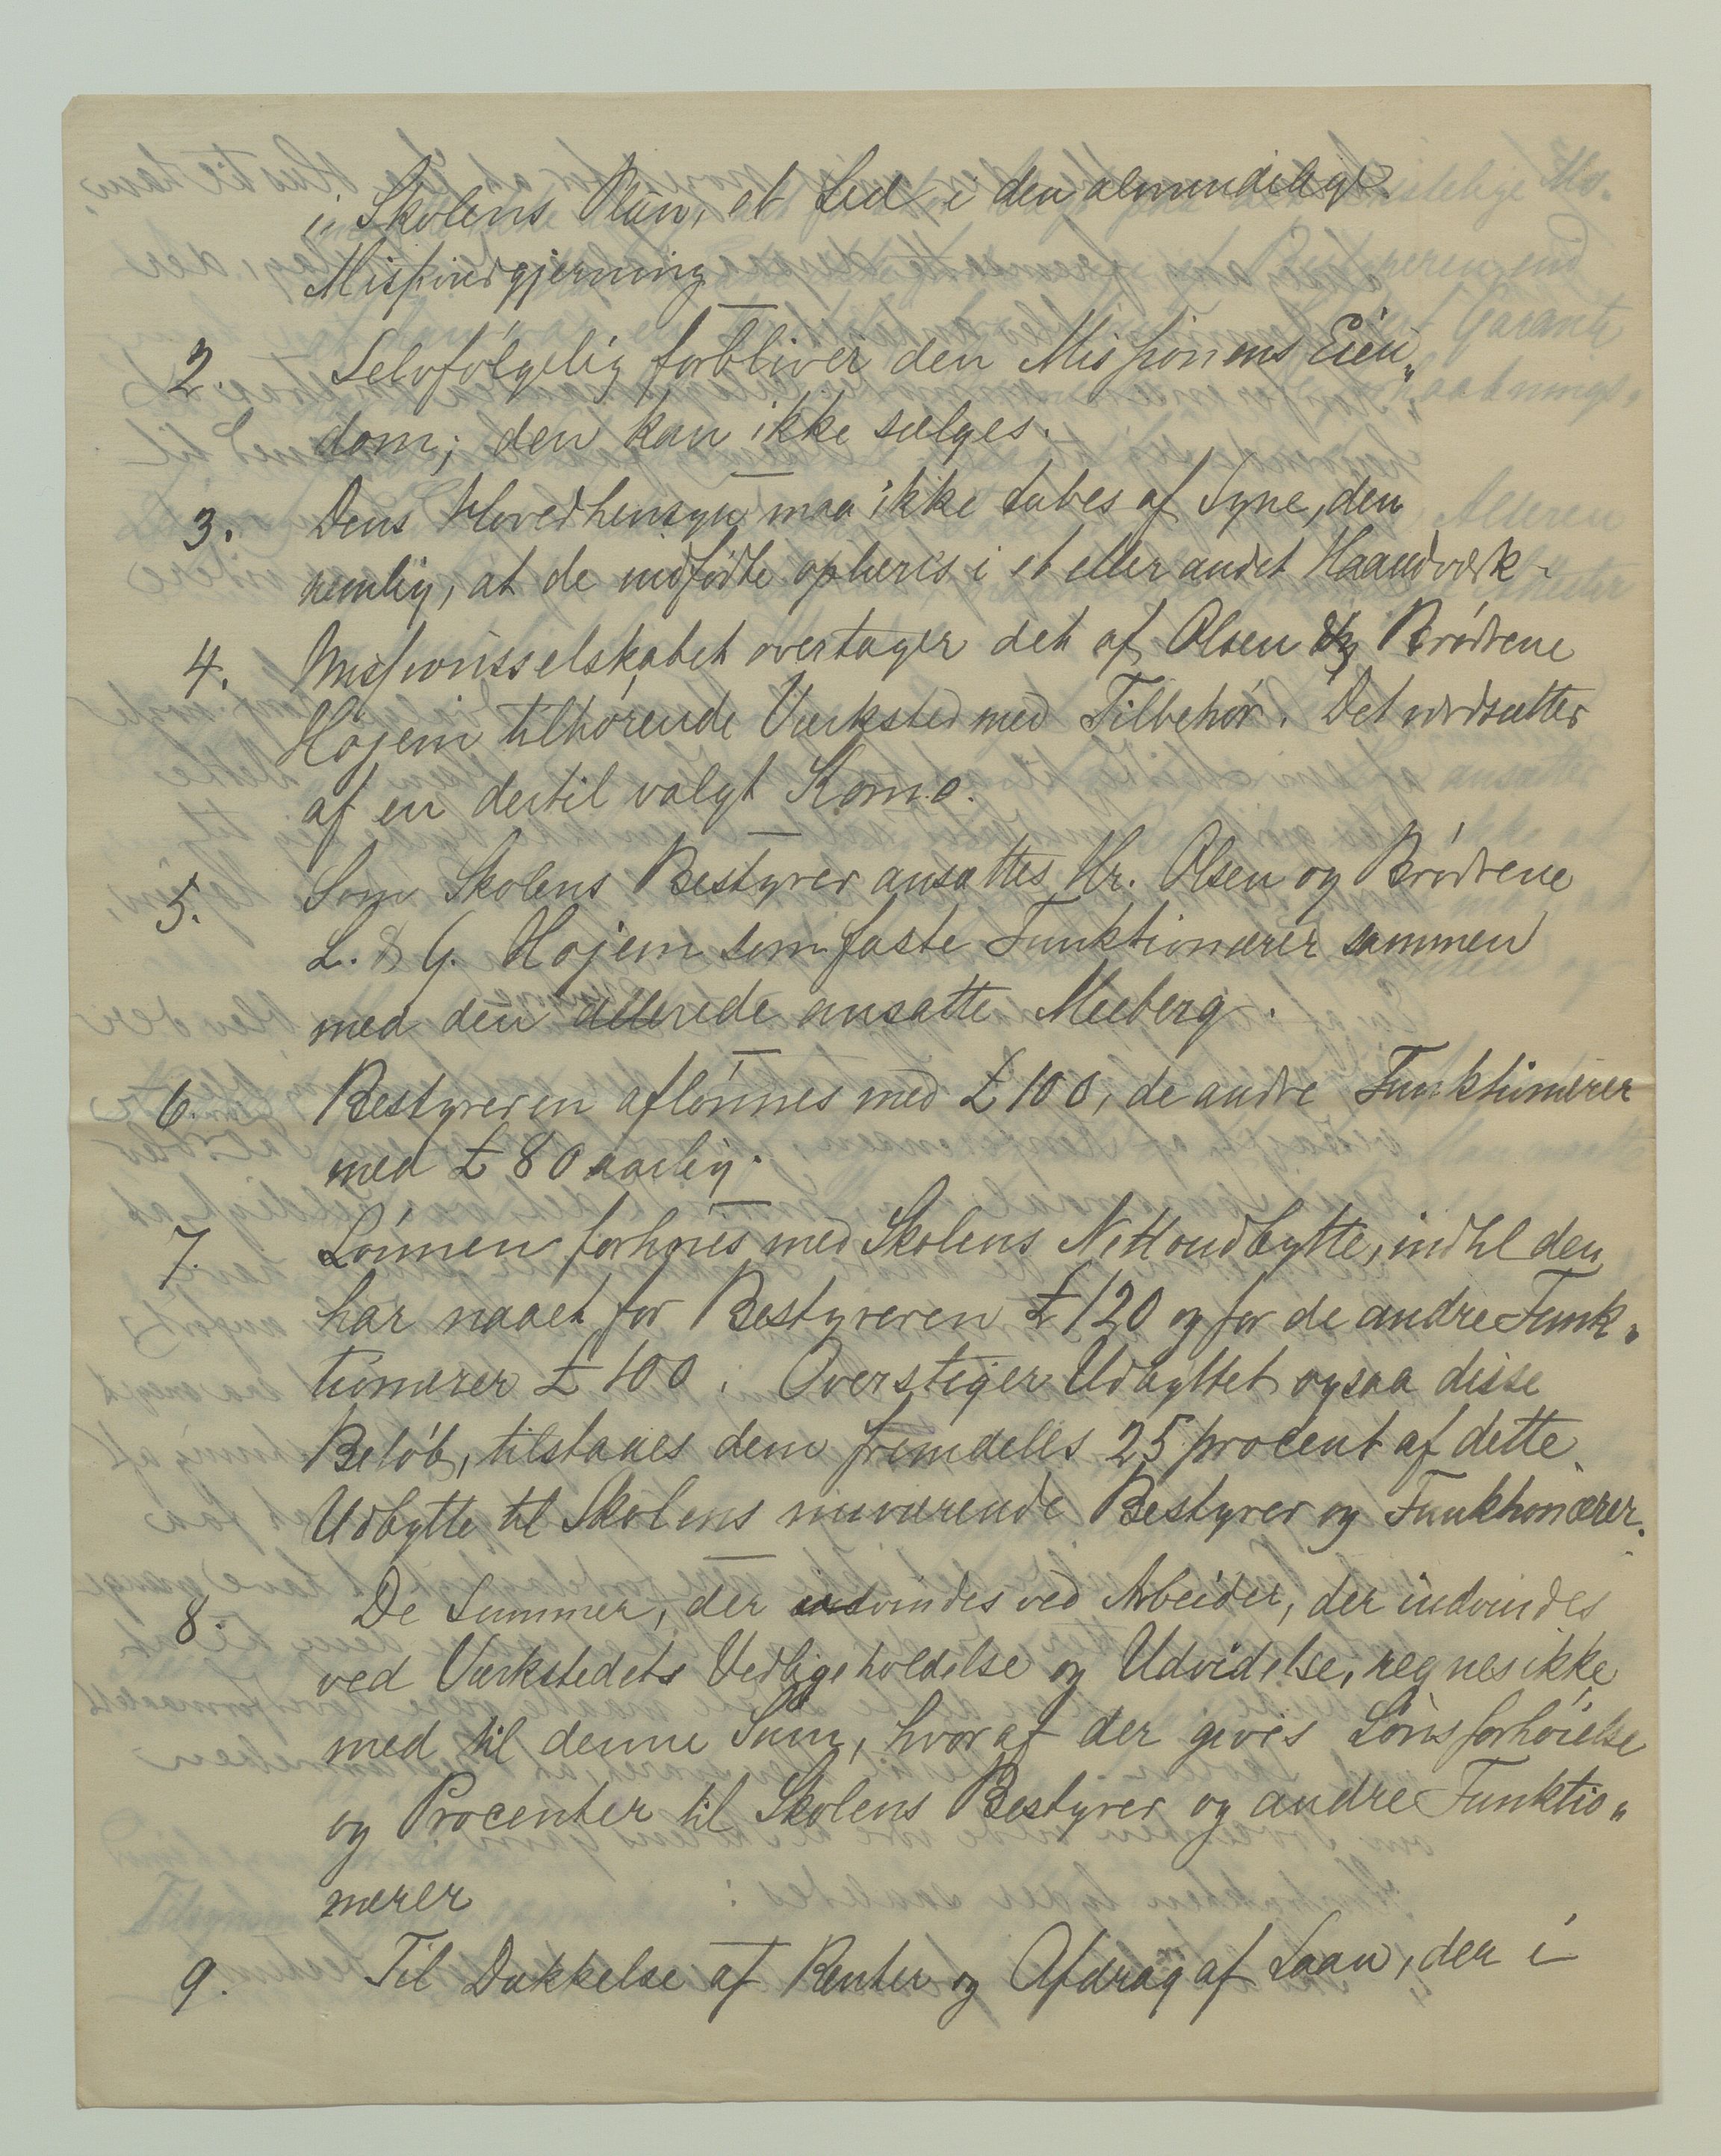 i Skolens Plan, et Led i den almindelige
Missionsgjerning
2. Selvfølgelig forbliver den Missionens Eien„
dom; den kan ikke sælges.
3. Dens Hovedhensyn maa ikke tabes af Syne, den
nemlig, at de indfødte oplæres i et eller andet Haandværk.
4. Missionsselskabet overtager det af Olsen og Brødrene
Højem tilhørende Værksted med Tilbehør. Det værdsættes
af en dertil valgt Kom.e.
5. Som Skolens Bestyrer ansattes Hr. Olsen og Brødrene
L. & G. Højem som faste Funktionærer sammen
med den allerede ansatte Meeberg.
6. Bestyreren aflønnes med £ 100, de andre Funktionærer
med £ 80 aarlig.
7. Lønnen forhøies med Skolens Nettoudbytte, indtil den
har naaet for Bestyreren £ 120 og for de andre Funk„
tionærer £ 100. Overstiger Udbyttet ogsaa disse
Beløb, tilstaaes dem fremdeles 25 procent af dette
Udbytte til Skolens nuværende Bestyrer og Funktionærer.
8. De Summer, der indvindes ved Arbeider, der indvindes
ved Værkstedets Vedligeholdelse og Udvidelse, regnes ikke
med til denne Sum, hvoraf der gives Lønsforhøielse
og Procenter til Skolens Bestyrer og andre Funktio„
nærer
9. Til Dækkelse af Renter og Afdrag af Laan, der i